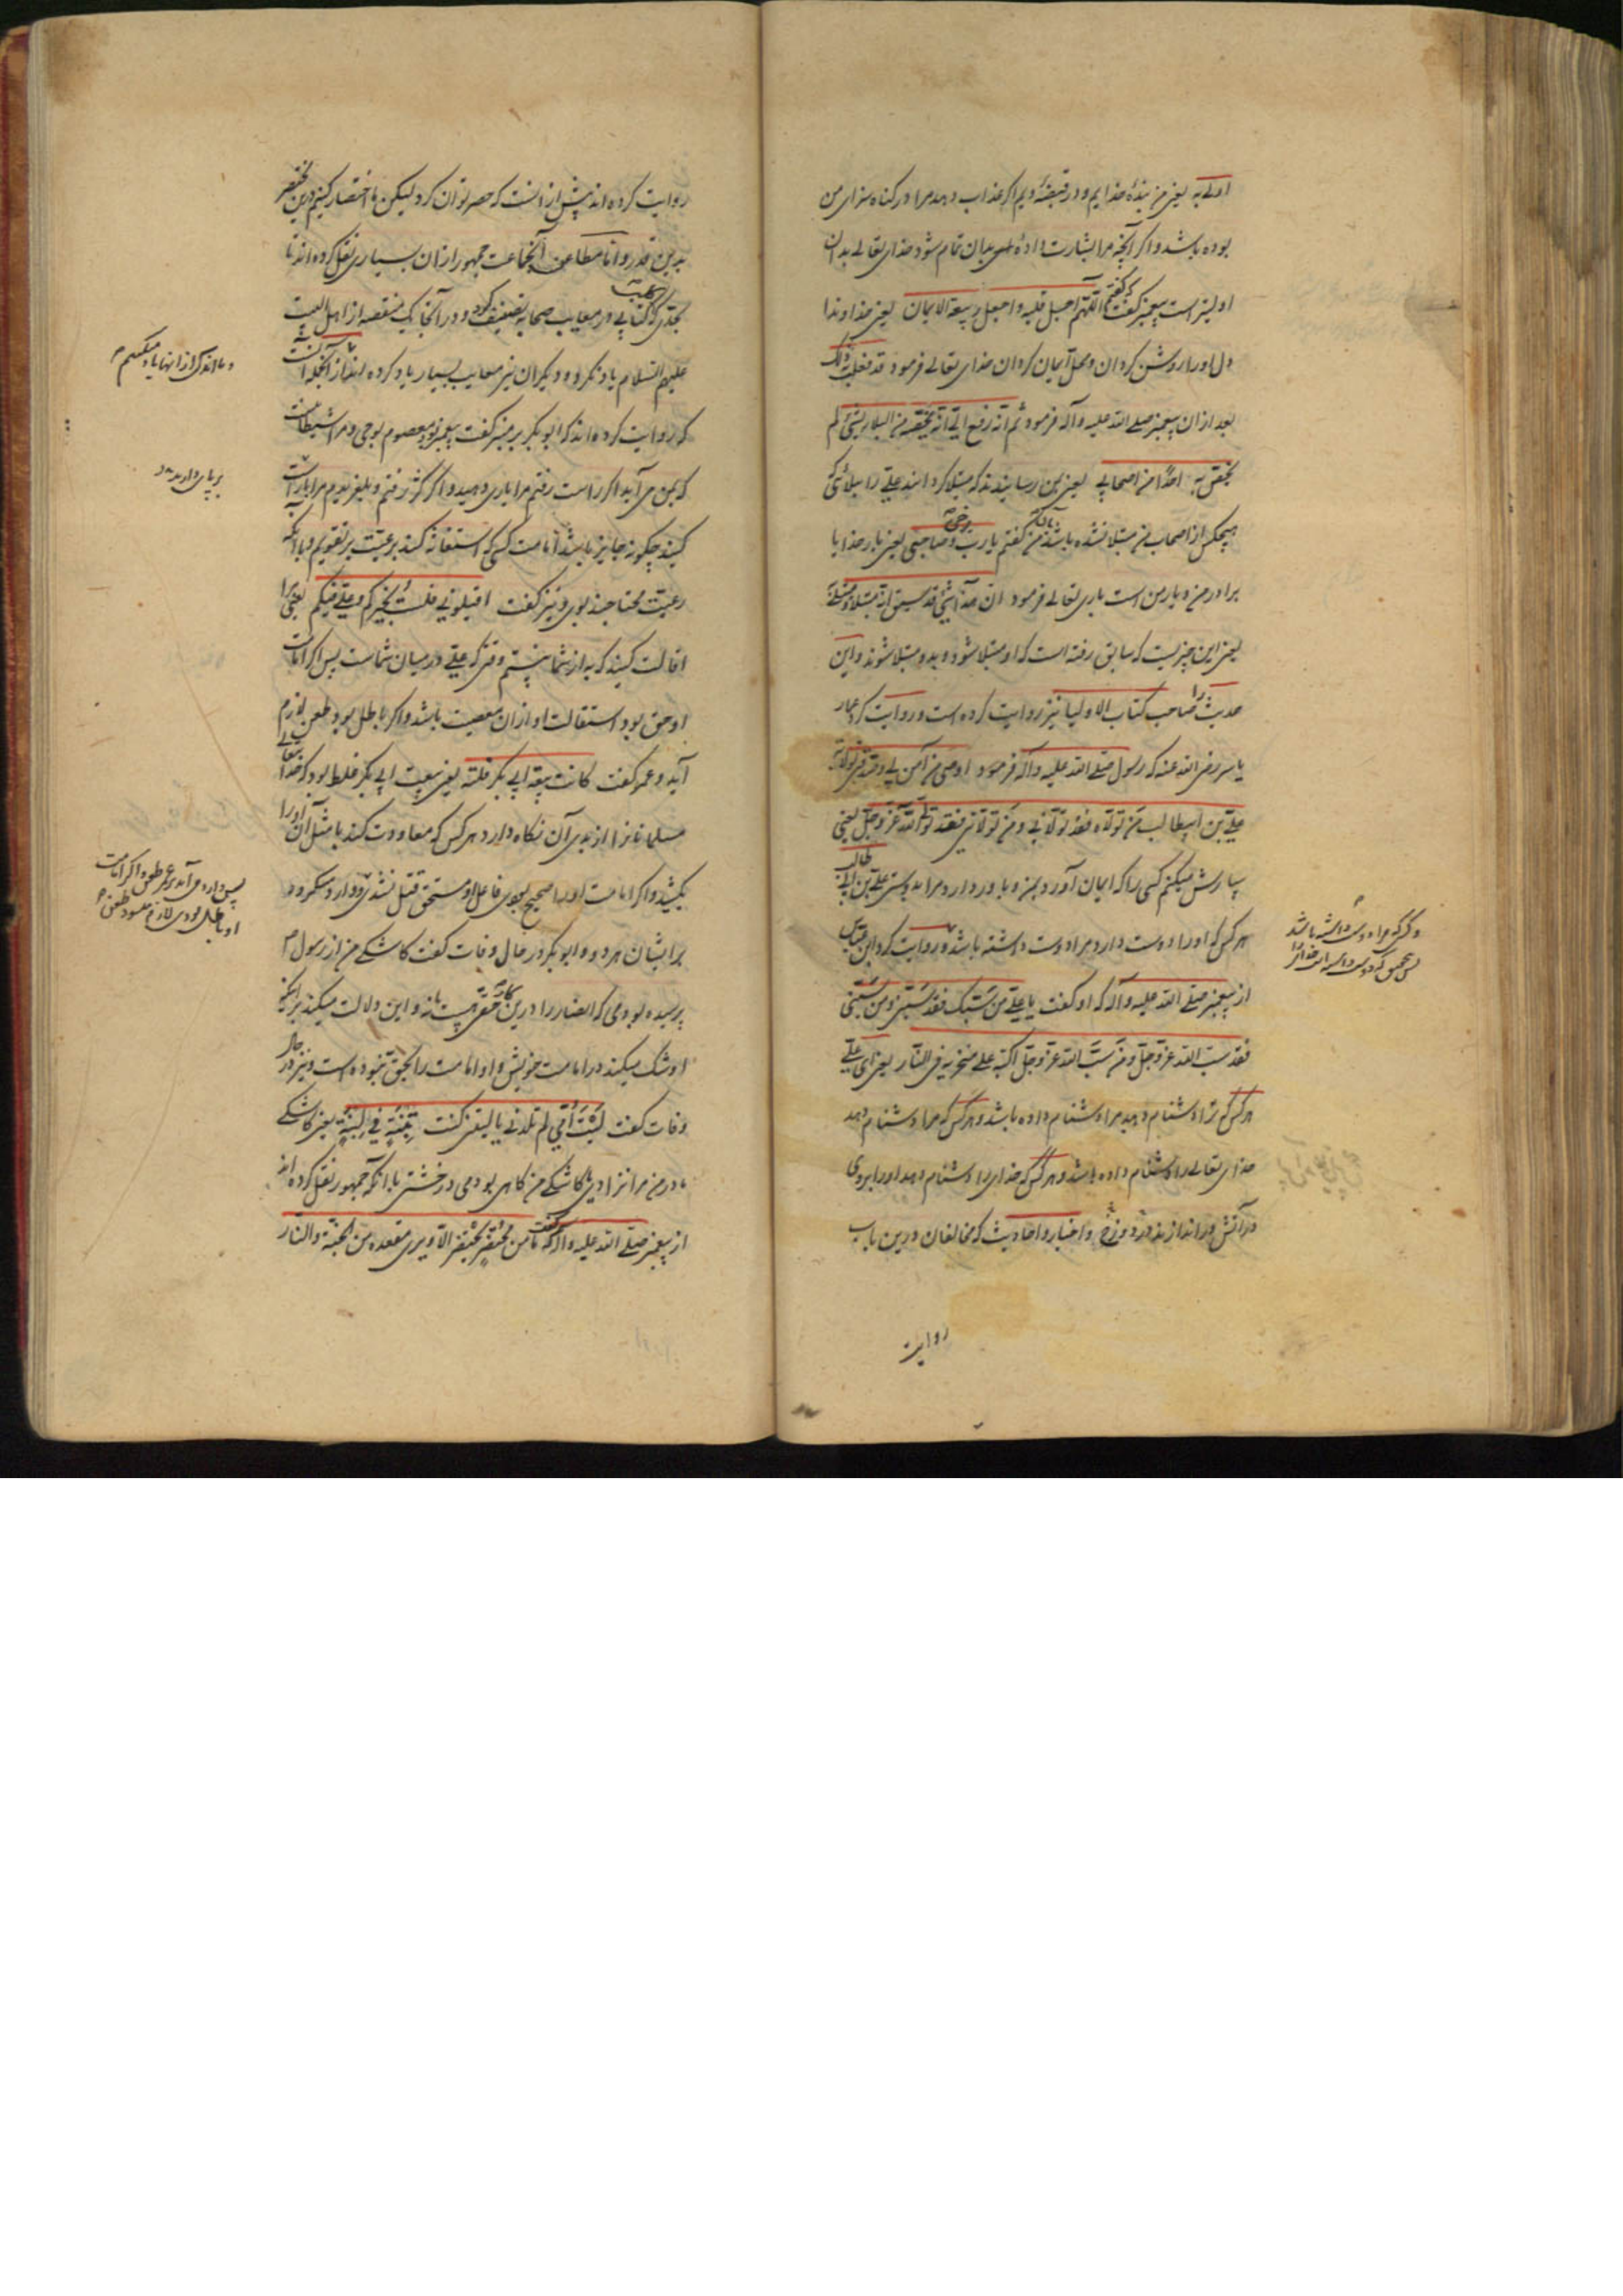 اولے به یعنی من بندهٔ خدایم و در قبضهٔ ویم اکر عذاب دهد مرا در کناه سزای من
بوده باشد و اکر آنچه مرا بشارت داده بدان تمام شود خدای تعالے بدان
اولیتر است پیغمبر کفت که کفتم اللهم اجل قلبه و اجعل ربیعه الایمان یعنی خداوندا
دل او را روشن کردان و محل ایمان کردان خدای تعالے فرمود قد فعلت ذلک
بعد ازان پیغمبر صلے الله علیه و آله فرمود ثم انه رفع الی انه یخصه من البلاء بشئ لم
یخص به احدا من اصحابی یعنی بمن رسانیدند که مبتلا کردانند علے را ببلائی که
هیچکس از اصحاب من مبتلا نشده باشد بآن من کفتم یا رب اخی و صاحبی یعنی بار خدایا
برادر من و یار من است باری تعالے فرمود ان هذا شئ قد سبق انه مبتلا و مبتلے به
یعنی این چیزیست که سابق رفته است که او مبتلا شود و بدو مبتلا شوند و این
حدیث را صاحب کتاب الاولیا نیز روایت کرده است و روایت کرد عمار
یاسر رضی الله عنه که رسول صلے الله علیه و آله فرمود اوصی من آمن بی و صدقنی بولایة
علے بن ابیطالب من تولاه فقد تولانی و من تولانی فقد تولی الله عز و جل یعنی
سپارش میکنم کسی را که ایمان آورد بمن و باور دارد مرا بدوستی علے بن ابی طالب
هر کس که او را دوست دارد مرا دوست داشته باشد و روایت کرد ابن عباس
از پیغمبر صلے الله علیه و آله که او کفت یا علے من سبک فقد سبنی و من سبنی
فقد سب الله عز و جل و من سب الله عز و جل اکبه علے منخریه فی النار یعنی ای علے
هر کس که ترا دشنام دهد مرا دشنام داده باشد و هر کس که مرا دشنام دهد
خدای تعالے را دشنام داده باشد و هر کس که خدای را دشنام دهد او را بروی
در آتش در اندازند در دوزخ و اخبار و احادیث که مخالفان درین باب
و کسی که مرا دوست داشته باشد
پس بتحقیق که دوست داشته است خدا را
روایت
روایت کرده اند بیش از انست که حصر توان کرد لیکن ما اختصار کنیم درین مختصر
بدین قدر و اما مطاعن آنجماعت جمهور ازان بسیاری نقل کرده اند تا
بحدی که کلبی کتابی در معایب صحابه تصنیف کرد و در آنجا یک منقصه از اهل البیت
علیهم السلام یاد نکرد و دیکران نیز معایب بسیار یاد کرده اند از آنجمله آنست
که روایت کرده اند که ابو بکر بر منبر کفت پیغمبر معصوم بود بوحی و مرا شیطانیست
که بمن می آید اکر راست رفتم مرا یاری دهید و اکر کژ رفتم و بلغزیدم مرا براه راست
کنید چکونه جایز باشد امامت کسی که استعانه کند برعیت بر تقویم و با آنکه
رعیت محتاجند بوی و نیز کفت اقیلونی فلست بخیرکم و علے فیکم یعنی مرا
اقالت کنید که به از شما نیستم وقتی که علے در میان شماست پس اکر امامت
او حق بود استقالت او ازان معصیت باشد و اکر باطل بود طعن لازم
آید و عمر کفت کانت بیعة ابی بکر فلتة یعنی بیعت ابی بکر غلط بود که خدا تعالے
مسلمانانرا از بدی آن نکاه دارد هر کس که معاودت کند بامثل آن او را
بکشید و اکر امامت او را صحیح بودی فاعل او مستحق قتل نشدی و وارد میکردد
بر ایشان هر دو و ابو بکر در حال وفات کفت کاشکے من از رسول
پرسیده بودمی که انصار را درین کار حقی هست یا نه و این دلالت میکند بر آنکه
او شک میکند در امامت خویش و او امامت را بحق نبوده است و نیز در حال
وفات کفت لیت امی لم تلدنی یا لیتنی کنت تبنة فی لبنة یعنی کاشکے
مادر من مرا نزادی کاشکے من کاهی بودمی در خشتی با آنکه جمهور نقل کرده اند
از پیغمبر صلے الله علیه و آله که کفت ما من محتضر یحتضر الا و یری مقعده من الجنة و النار
و ما اندکی از انها یاد میکنیم
بر پای دارید
پس وارد می آید بر عمر طعن و اکر امامت
او باطل بودی لازم میشود طعن